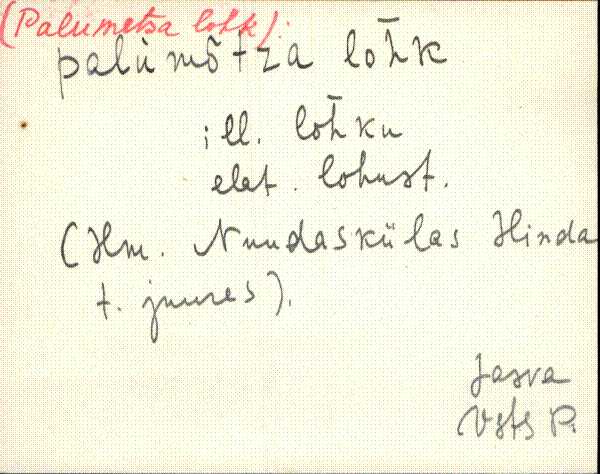 (Palumetsa lohk).
palùmõtza lohk
ill. lohku
elat. lohust.
(Hm. Nuudaskülas Hinda
t. juures).
Jasva
Vsts P.